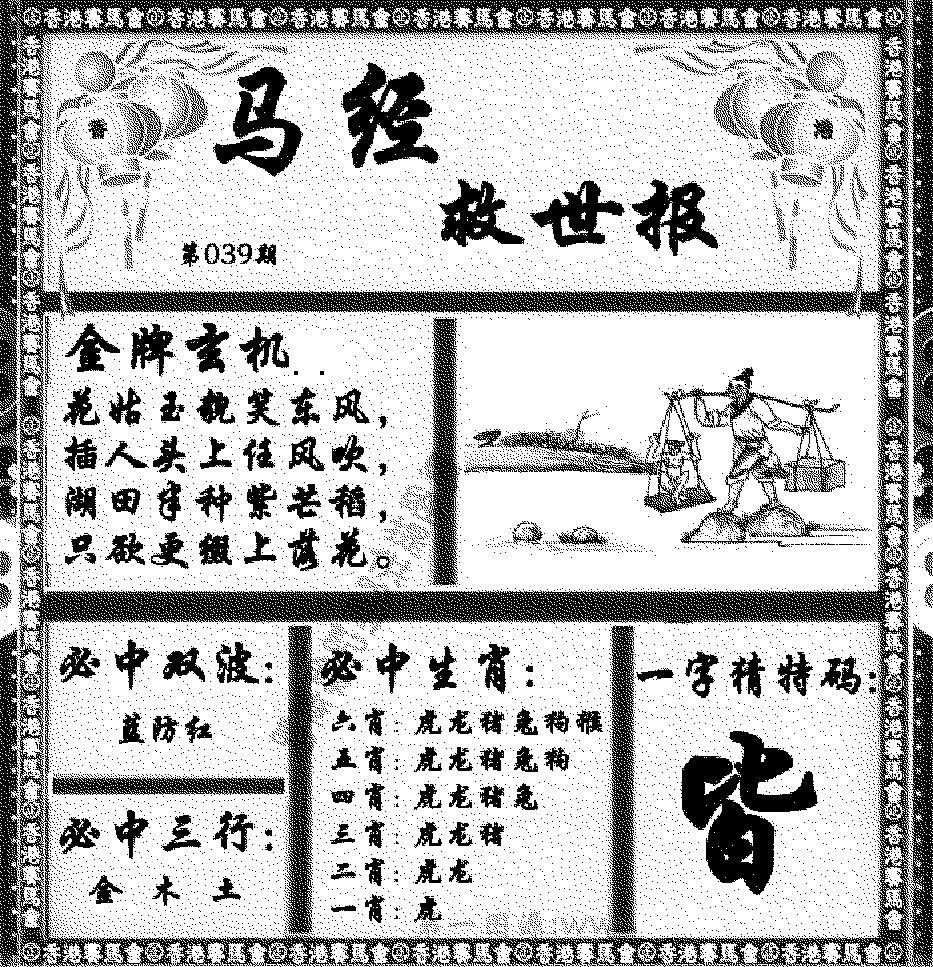 香港賽馬會香港賽馬會香港賽馬會香港賽馬會香港賽馬會香港賽馬會香港賽馬會
香
港
马经
救世报
第039期
金牌玄机..
花姑玉貌笑东风，
插人头上任风吹，
湖田半种紫芒稻，
只欲更缀上落花。
必中双波：
蓝防红
必中三行：
金 木 土
必中生肖：
六肖：虎龙猪兔狗猴
五肖：虎龙猪兔狗
四肖：虎龙猪兔
三肖：虎龙猪
二肖：虎龙
一肖：虎
一字猜特码：
皆
香港賽馬會香港賽馬會香港賽馬會香港賽馬會香港賽馬會香港賽馬會香港賽馬會